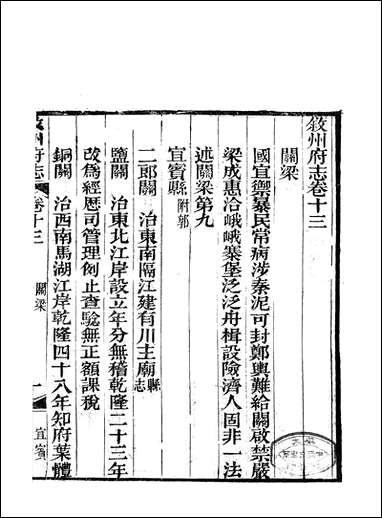 敘州府志卷十三
關梁
國宜禦暴民常病涉秦泥可封鄭輿難給關啟禁嚴
梁成惠洽峨峨寨堡泛泛舟楫設險濟人固非一法
述關梁第九
宜賓縣附郭
二郎關　治東南隔江建有川主廟縣志
鹽關　治東北江岸設立年分無稽乾隆二十三年
改為經歷司管理例止查驗無正額課稅
銅關　治西南馬湖江岸乾隆四十八年知府葉體
敘州府志
卷十三
關梁
一
宜賓